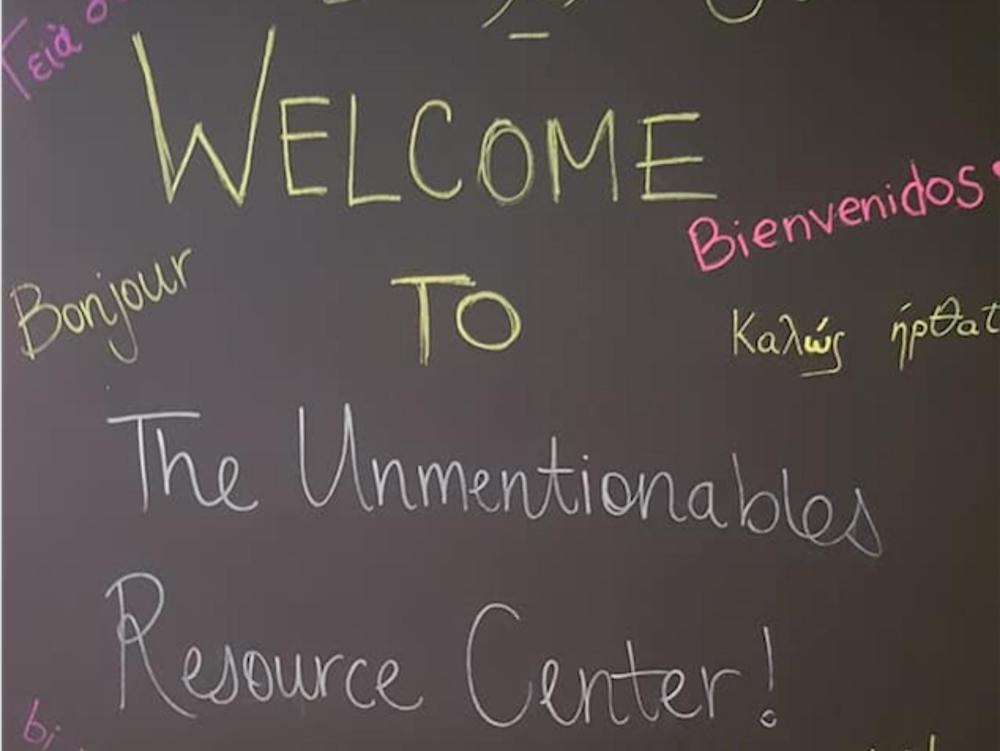 Γειά
WELCOME
Bienvenidos
Bonjour
TO
Καλώς ήρθατ
The Unmentionables
Resource Center!
bi